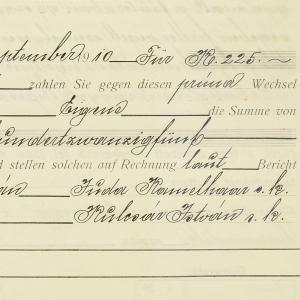 ptember 1910 Für K. 225.-
zahlen Sie gegen diesen prima Wechsel
Eigene die Summe von
hundertzwanzigfünf
d stellen solchen auf Rechnung laut Bericht
án Juda s. k.
Kulcsár István s. k.